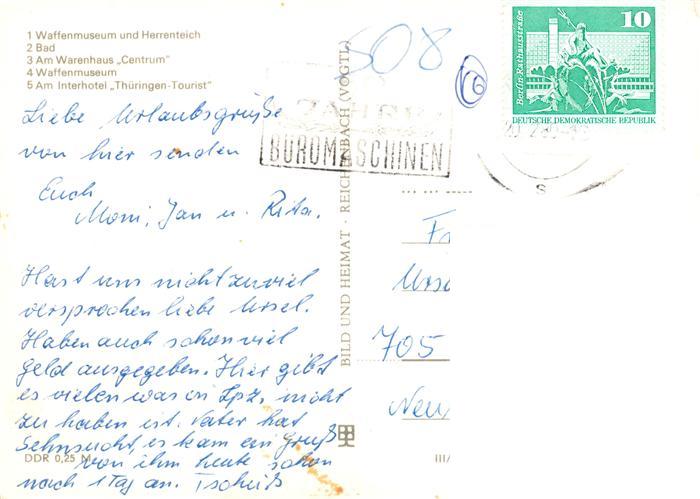 1 Waffenmuseum und Herrenteich
2 Bad
3 Am Warenhaus „Centrum“
4 Waffenmuseum
5 Am Interhotel „Thüringen-Tourist“
Liebe Urlaubsgrüße
von hier senden
Euch
Moni, Jan u. Rita.
Hast uns nicht zuviel
versprochen liebe Ursel.
Haben auch schon viel
Geld ausgegeben. Hier gibt
es vielen was in Lpz. nicht
zu haben ist. Vater hat
Sehnsucht, es kam ein Gruß
von ihm heute schon
nach 1 Tag an. Tschüß
DDR 0,25 M
BILD UND HEIMAT · REICHENBACH (VOGTL)
508
6
BÜROMASCHINEN
10
Berlin-Rathausstraße
DEUTSCHE DEMOKRATISCHE REPUBLIK
s
Urse
705
Neu
III/